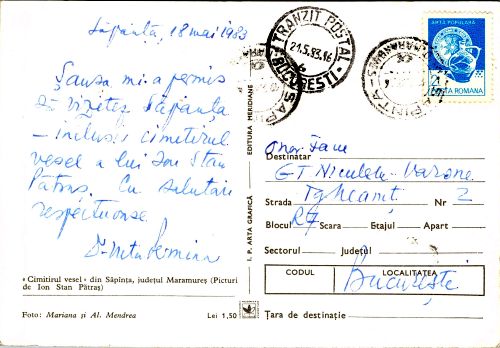 Săpânța, 18 mai 1983
Șansa mi-a permis
să vizitez Săpânța
— inclusiv cimitirul
vesel a lui Ion Stan
Pătraș. Cu salutări
respectuoase.
«Cimitirul vesel» din Săpînța, județul Maramureș (Picturi
de Ion Stan Pătraș)
Foto: Mariana și Al. Mendrea
Lei 1,50
I. P. ARTA GRAFICĂ
EDITURA MERIDIANE
TRANZIT POSTAL
21.5.83.16
BUCUREȘTI
SĂPÎNȚA
ARTA POPULARA
POSTA ROMANA
Destinatar
GT Niculete Varone
Strada Tg Neamț Nr 2
Blocul R7 Scara Etajul Apart
Sectorul Județul
CODUL LOCALITATEA
București
Țara de destinație